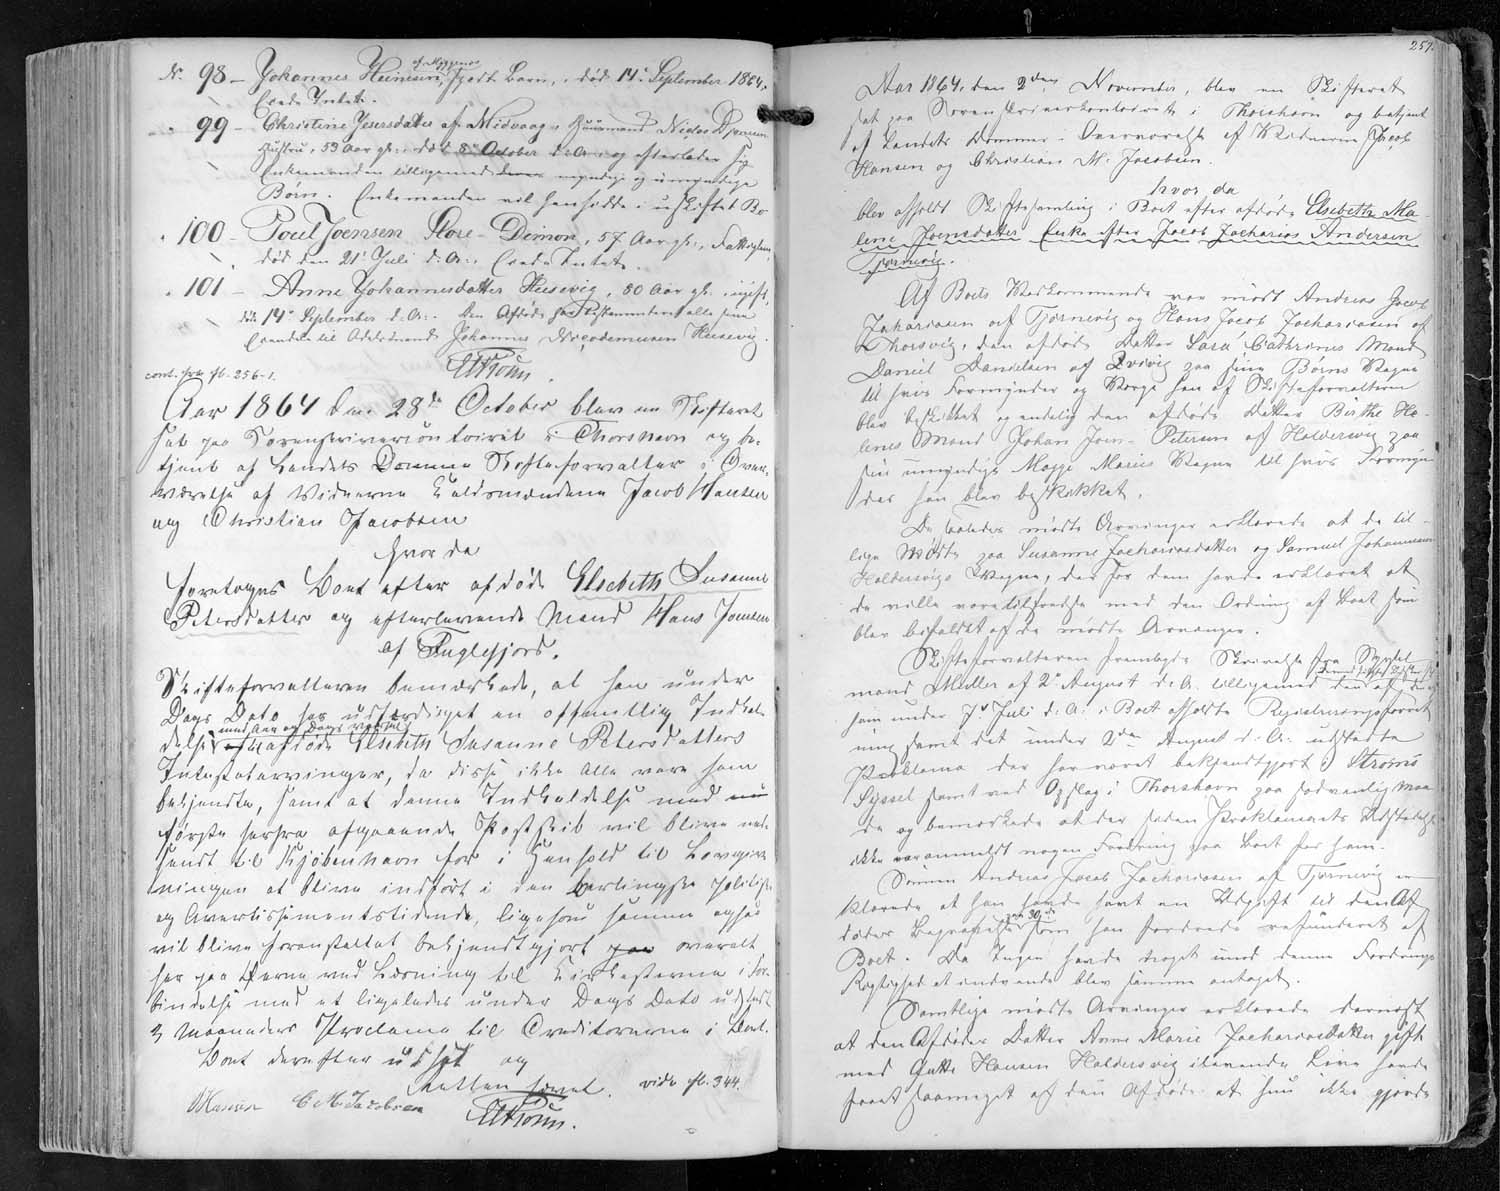 N. 98 – Johannes Heinesen, af Myggenæs, født Barn, død 14. September 1864.
Eiede Intet.
" 99 – Christine Joensdatter af Midvaag, Huusmand Niclas Djonesen
Hustru, 59 Aar gl., død 8. October d. A. og efterlader sig
Enkemanden tilligemed myndige og umyndige
Børn. Enkemanden vil hensidde i uskiftet Bo
" 100 – Poul Joensen Store-Dimon, 57 Aar gl., Fattiglem,
død den 21 Juli d. A., Eiede Intet.
" 101 – Anne Johannesdatter Husevig, 80 Aar gl. ugift,
død 14 September d. A. Den Afdøde har testamenteret alle sine
Eiendele til Johannes Nicodemussen Husevig.
cont. fra fl. 256-1.
Aar 1864 den 28de October blev en Skifteret
sat paa Sorenskrivercontoiret i Thorshavn og be-
tjent af Landets Dommer Skifteforvalter i Over-
værelse af Vidnerne Jacob Hansen
og Christian Jacobsen
hvor da
foretoges Boet efter afdøde Elsebeth Susanne
Petersdatter og efterlevende Mand Hans Joensen
af Fuglefjord.
Skifteforvalteren bemærkede, at han under
Dags Dato har udfærdiget en offentlig Indkal-
delse med Aar og Dags Varsel af afdøde Elsebeth Susanne Petersdatters
Intestatarvinger, da disse ikke alle vare ham
bekjendte, samt at denne Indkaldelse med
første herfra afgaaende Postskib vil blive ned-
sendt til Kjøbenhavn for i Henhold til Lovgiv-
ningen at blive indført i den berlingske politiske
og Avertissementstidende, ligesom samme ogsaa
vil blive foranstaltet bekjendtgjort overalt
her paa Færøerne ved Læsning til Kirkestevne i For-
bindelse med et ligeledes under Dags Dato udstedt
3 Maaneders Proclama til Creditorerne i Boet.
Boet derefter udsat og
Retten hævet. vide fl. 344.
Hansen C M Jacobsen
257.
Aar 1864, den 2den November, blev en Skifteret
sat paa Sorenskriverkontoiret i Thorshavn og betjent
af Landets Dommer i Overværelse af Vidnerne Jacob
Hansen og Christian M. Jacobsen.
hvor da
blev afholdt Skiftesamling i Boet efter afdøde Elsebeth Ma-
lene Joensdatter Enke efter Jacob Zacharias Andersen
Tjørnevig.
Af Boets Vedkommende var mødt Andreas Jacob
Zachariasen af Tjørnevig og Hans Jacob Zachariasen af
Thorsvig, den afdøde Datter Sara Cathrines Mand
Daniel Danielsen af Qvivig paa sine Børns Vegne
til hvis Formynder og Værge han af Skifteforvalteren
blev beskikket og endelig den afdøde Datter Birthe He-
lenes Mand Johan Joen-Petersen af Haldersvig paa
sin umyndige Maggi Maries Vegne til hvis Formyn-
der han blev beskikket.
De saaledes mødte Arvinger erklærede at de til-
lige mødte paa Susanne Zachariasdatter og Samuel Johannesen
Haldersvigs Vegne, der for dem havde erklæret at
de ville være tilfredse med den Ordning af Boet som
blev besluttet af de mødte Arvinger.
Skifteforvalteren fremlagde Skrivelse fra Syssel-
mand Müller af 2. August d. A. tilligemed den af denne
som under 7. Juli d. A. i Boet afholdte Registreringsforret-
ning samt det under 2den August d. A. udstedte
Proklama der har været bekjendtgjort i Strømø
Syssel samt ved Opslag i Thorshavn paa sædvanlig Maa-
de og bemærkede at der siden Proklamaets Udstedelse
ikke var anmeldt nogen Fordring paa Boet for ham.
Sønnen Andreas Jacob Zachariasen af Tjørnevig er-
klærede at han havde havt en Udgift til den Af-
dødes Begravelse som han fordrede refunderet af
Boet. Da Ingen havde noget imod denne Fordrings
Rigtighed at indvende blev samme antaget.
Samtlige mødte Arvinger erklærede dernæst
at den Afdødes Datter Anne Marie Zachariasdatter gift
med Hansen Haldersvig i levende Live havde
faaet saameget af den Afdøde at hun ikke gjorde